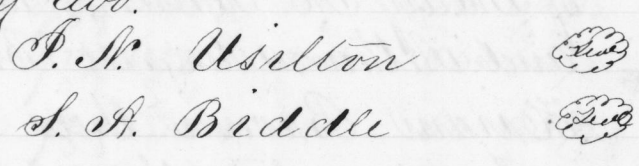 J. N. Usilton Seal
S. A. Biddle Seal